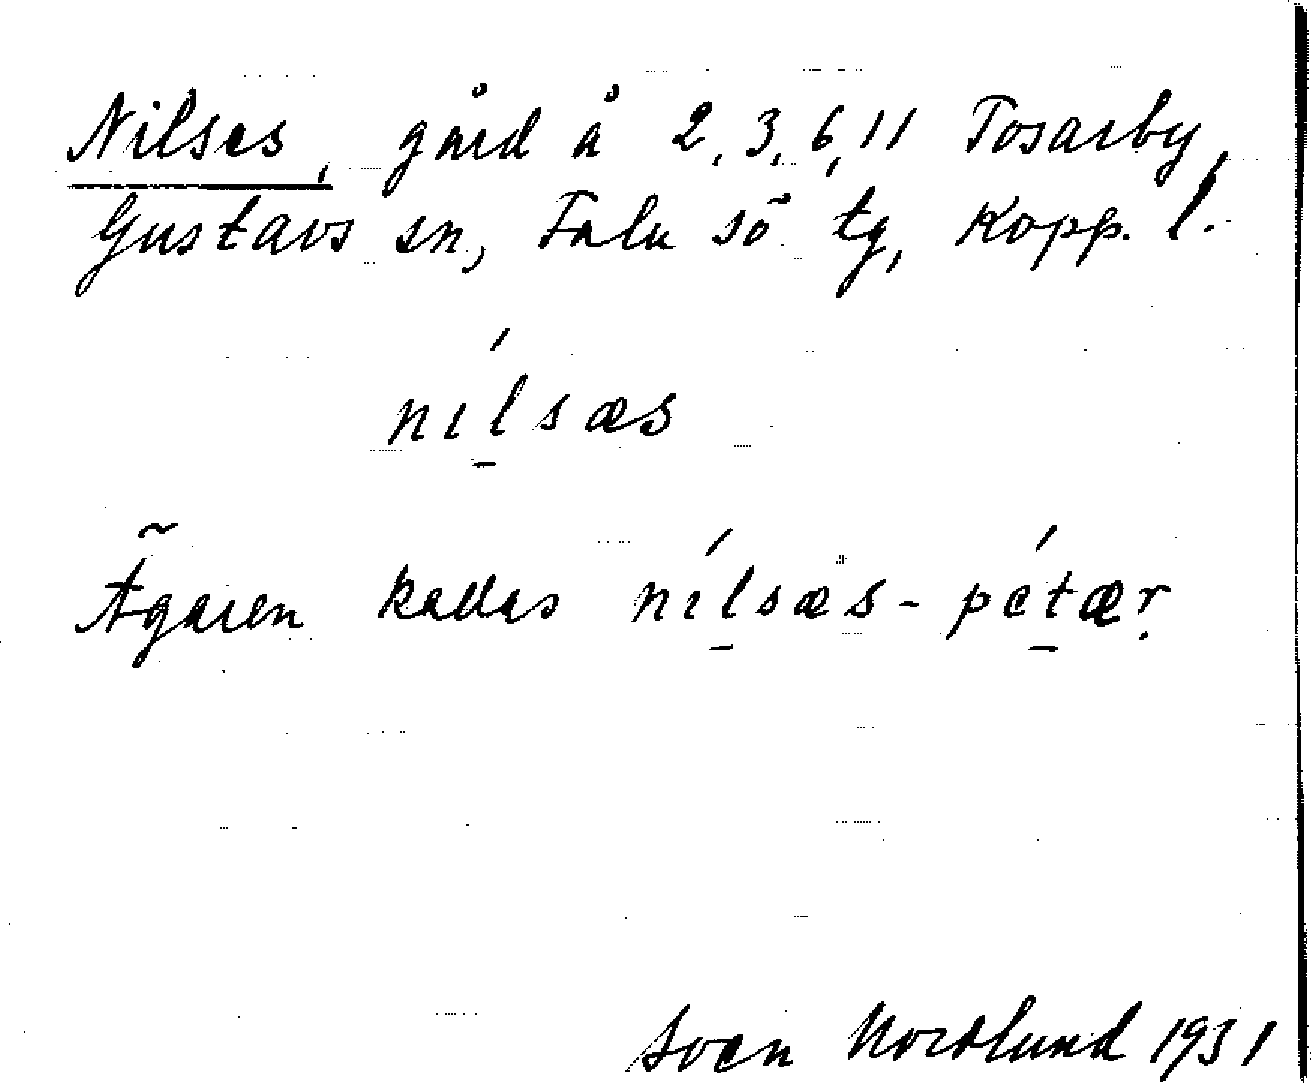 Nilses, gård å 2, 3, 6, 11 Tosarby,
Gustavs sn, Falu sö tg, Kopp. l.
nɩĺ̠sæs
Ägaren kallas nɩĺ̠sæs-pét̠æṛ
Sven Nordlund 1931